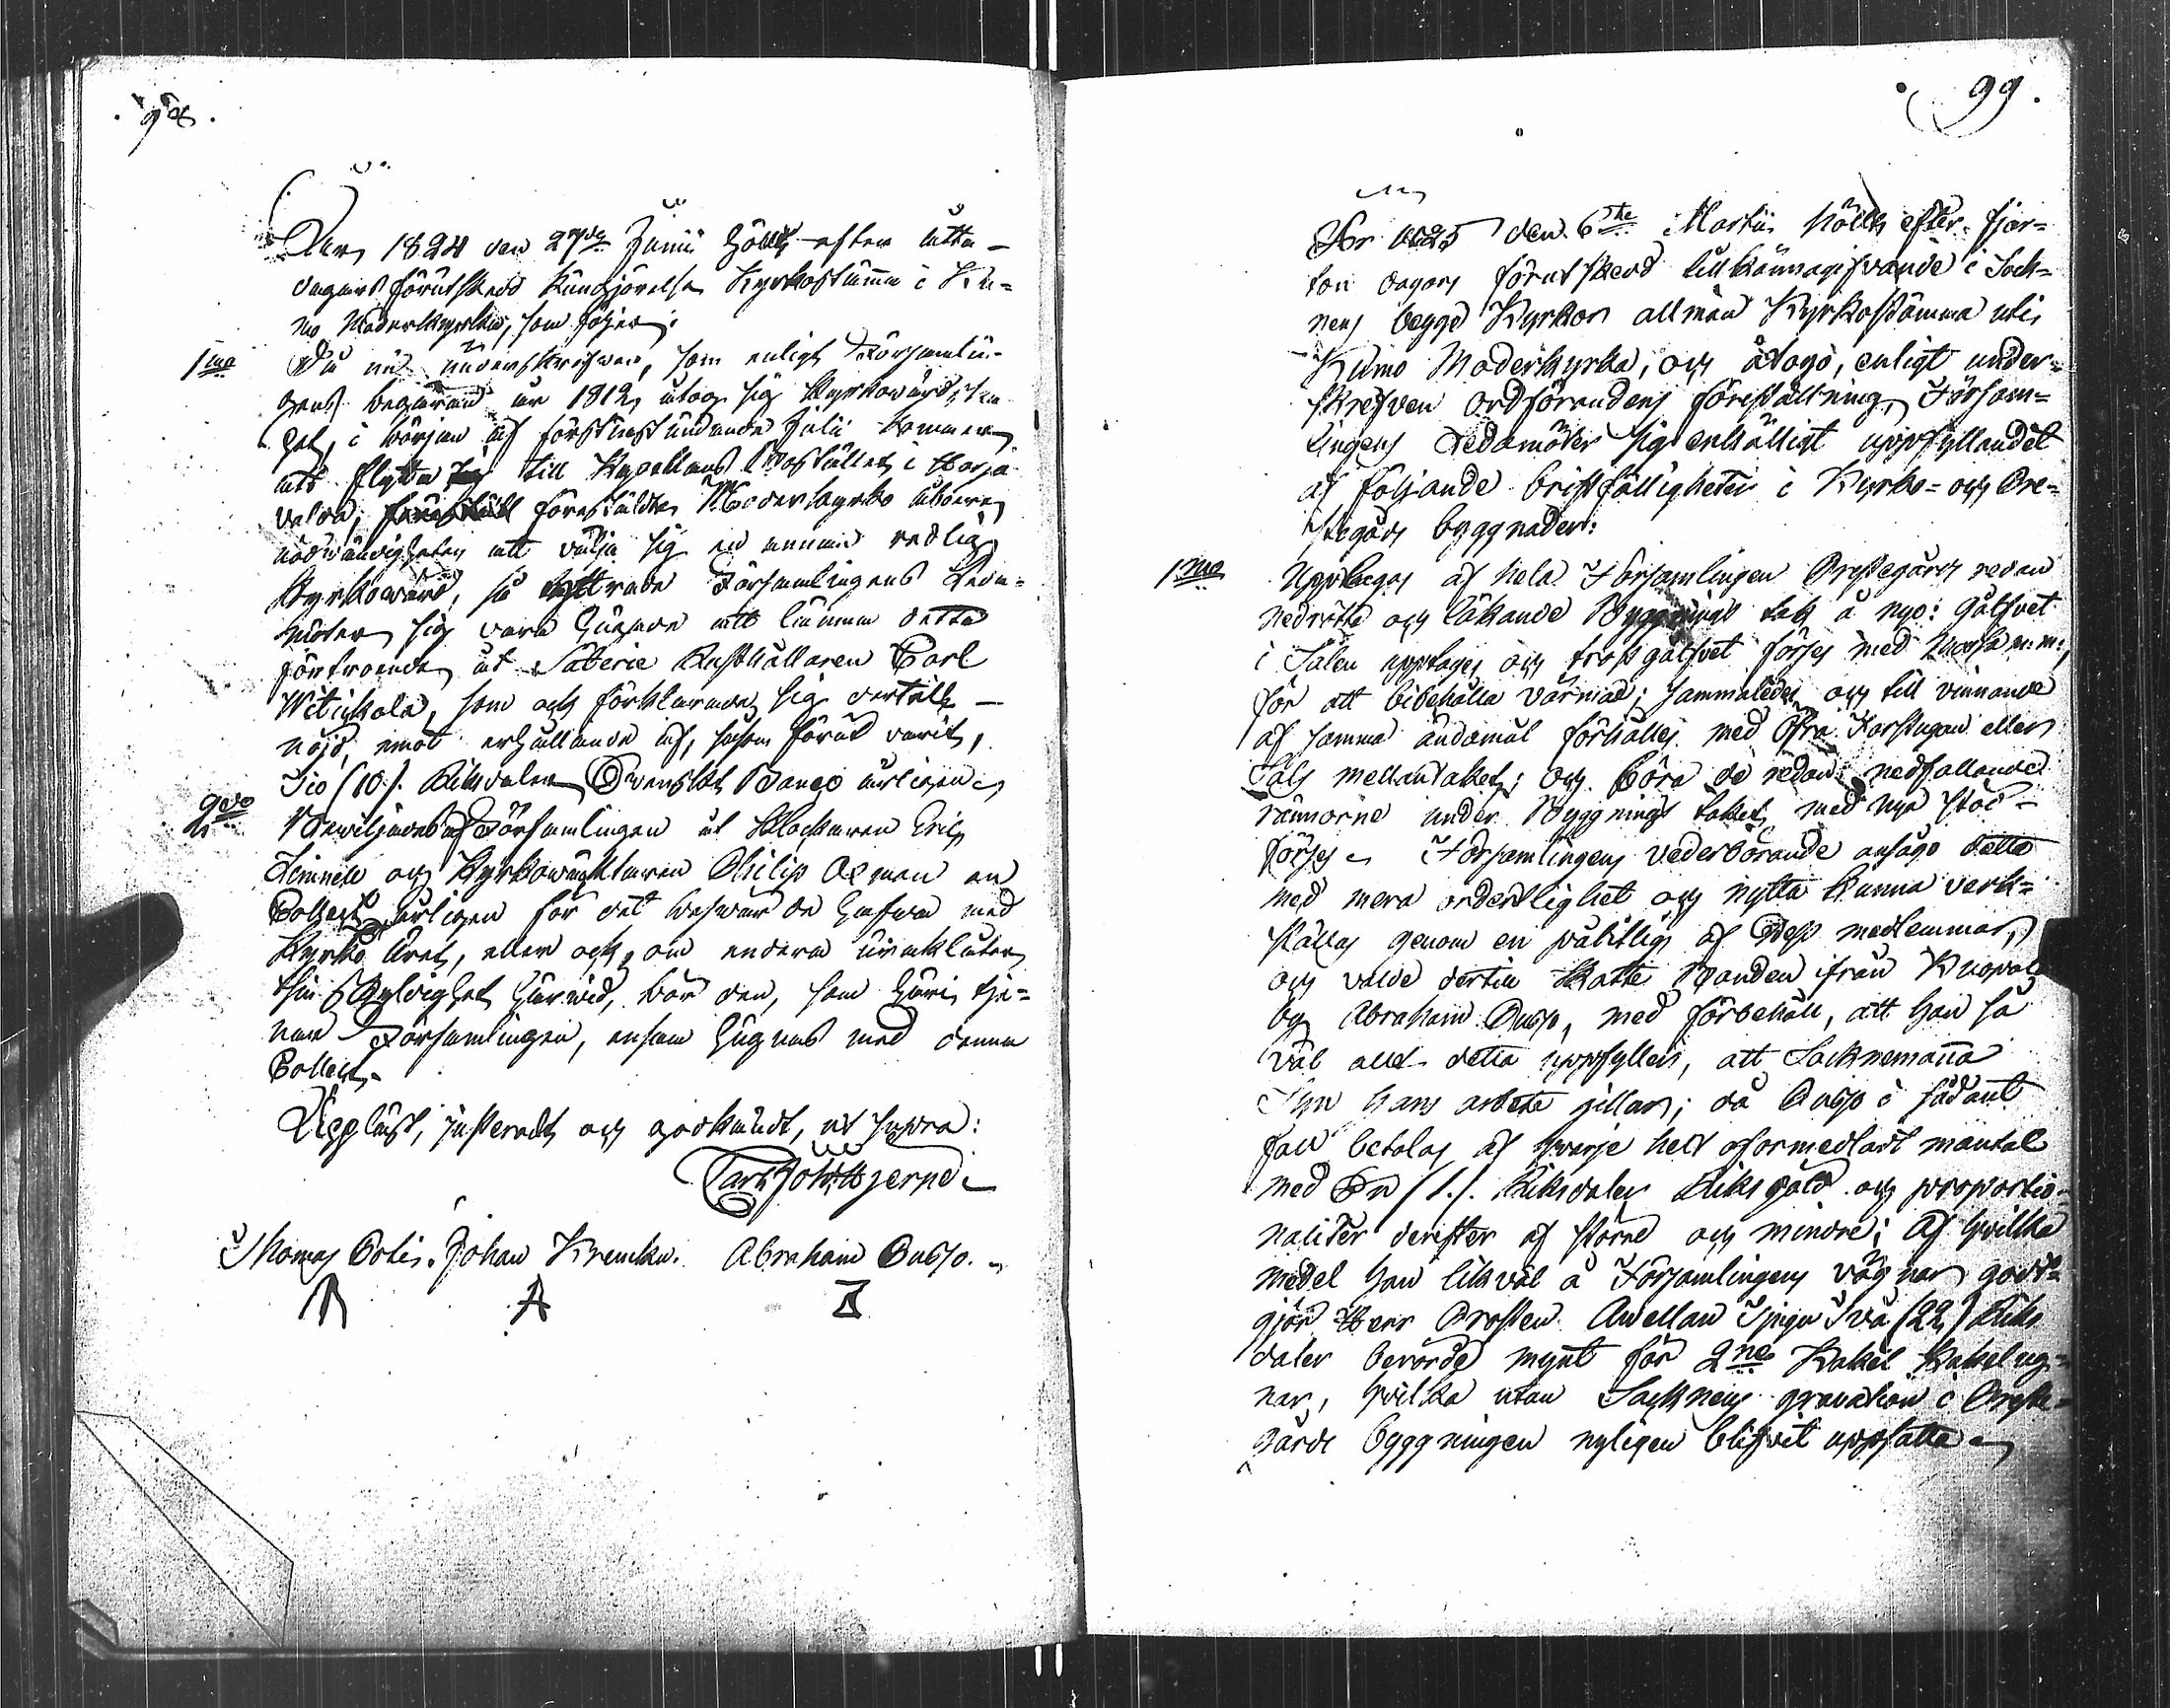 98.
Året 1824 den 27de Junii hölts efter åtta
dagars förutskedd kungjörelse Kyrkostämma i Ku=
mo Moderkyrka, som följer:
1mo Då nu underskrefven, som enligt Församlin-
gens begäran år 1812, åtog sig Kyrkovärds
, i början af förstinstundande Julii kommer
att flytta till Kapellans Bostället i Harja
valda, föreställdes Moderkyrko
nödvändigheten att välja sig en annan redlig
Kyrkovärd, så yttrade Församlingens Leda=
möter sig vara hugade att lämna detta
förtroende åt Säterie Rusthållaren Carl
Witickala, som ock förklarade sig dertill
nöjd, emot erhållande af, såsom förut varit,
Tio (10.) Riksdaler Svenskt Banco årligen.
2do Bewiljades af Församlingen åt Klockaren Eric
Limnell och Kyrkowäktaren Philip Åkman en
Collect årligen för det beswär de hafwa med
Kyrko Uret, eller ock, om endera
sin skyldighet härwid, bör den, som häri tje=
nar Församlingen, ensam hugnas med denna
Collect.
Uppläst, justeradt och godkändt, ut supra:
Carl Joh. Hjerpe
Thomas Potis. Johan Krencku. Abraham Pubso.
99.
År 1825 den 6te Martii hölts efter fjor=
ton dagars förut skedd tillkännagifvande i Sock=
nens begge Kyrkor allmän Kyrkostämma uti
Kumo Moderkyrka, och åtogo, enligt under=
skrefven Ordförandens föreställning, Försam=
lingens Ledamöter sig enhälligt uppfyllandet
af följande bristfälligheter i Kyrko= och Pre=
stegårds byggnader:
1mo Upptages af hela Församlingen Prestegårds redan
nedrötta och läkande Byggnings tak å nyo: golfvet
i Salen upptages och trossgolfvet förses med mossa m.m.,
för att bibehålla värman; sammaledes och till vinnande
af samma ändamål förhålles med Öfra Farstugan eller
Sals mellantaket; och böra de redan nedfallande
rännorne under Byggnings taket med nya stöd
förses. Församlingens vederbörande ansågo detta
med mera ordentlighet och nytta kunna verk=
ställas genom en pålitlig af Dess medlemmar,
och valde dertill Skatte Bonden ifrån Knopala
by Abraham Pubso, med förbehåll, att han så
väl allt detta uppfyller, att Socknemanna
Syn hans arbete gillar; då Pubso i sådant
fall betalas af hvarje helt oförmedladt mantal
med En (1.). Riksdaler Riksgäld och proportio-
naliter derefter af större och mindre; af hvilka
medel han likväl å Församlingens vägnar godt=
gjör Herr Prosten Avellan Tjugu Två (22) Riks
daler berörde mynt för 2ne Kakel Kakelug=
nar, hvilka utan Socknens gravation i Preste=
gårds byggningen nyligen blifvit uppsatte.